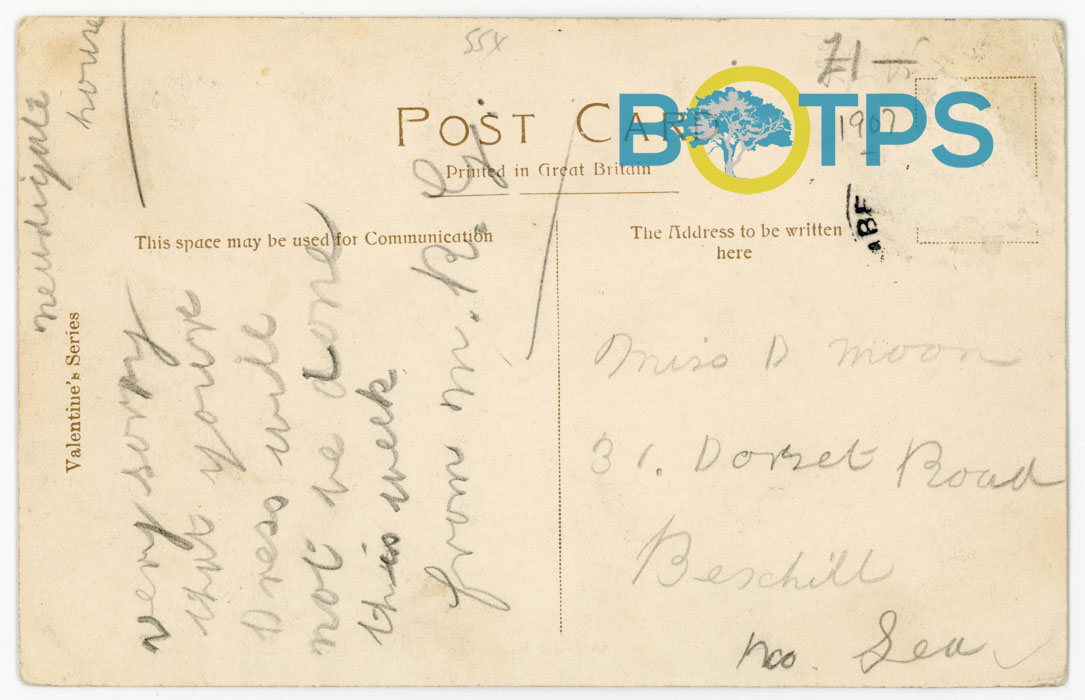 55X
£1 —
POST CARD
BOTPS
1907
Printed in Great Britain
This space may be used for Communication
The Address to be written
here
ABE
Valentine's Series
house
very sorry
that youre
Dress will
not be done
this week
from m. R. G
Miss D Moon
31. Dorset Road
Bexhill
Sea